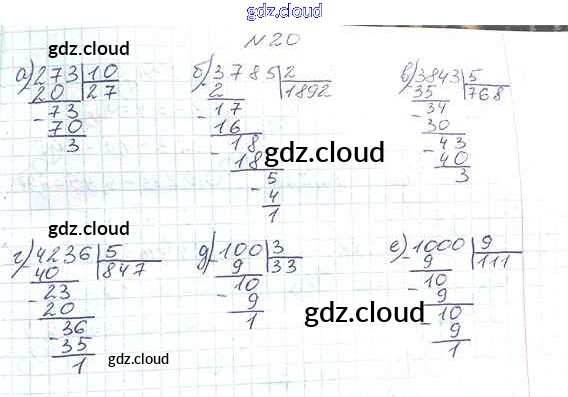 gdz.cloud
№20
gdz.cloud
а) 273 | 10
20 | 27
- 73
70
3
б) 3785 | 2
2 | 1892
- 17
16
- 18
- 18
5
- 4
1
в) 3843 | 5
35 | 768
- 34
30
- 43
40
3
gdz.cloud
gdz.cloud
gdz.cloud
г) 4236 | 5
40 | 847
- 23
20
- 36
35
1
д) 100 | 3
9 | 33
- 10
9
1
е) - 1000 | 9
9 | 111
- 10
9
- 10
9
1
gdz.cloud
gdz.cloud